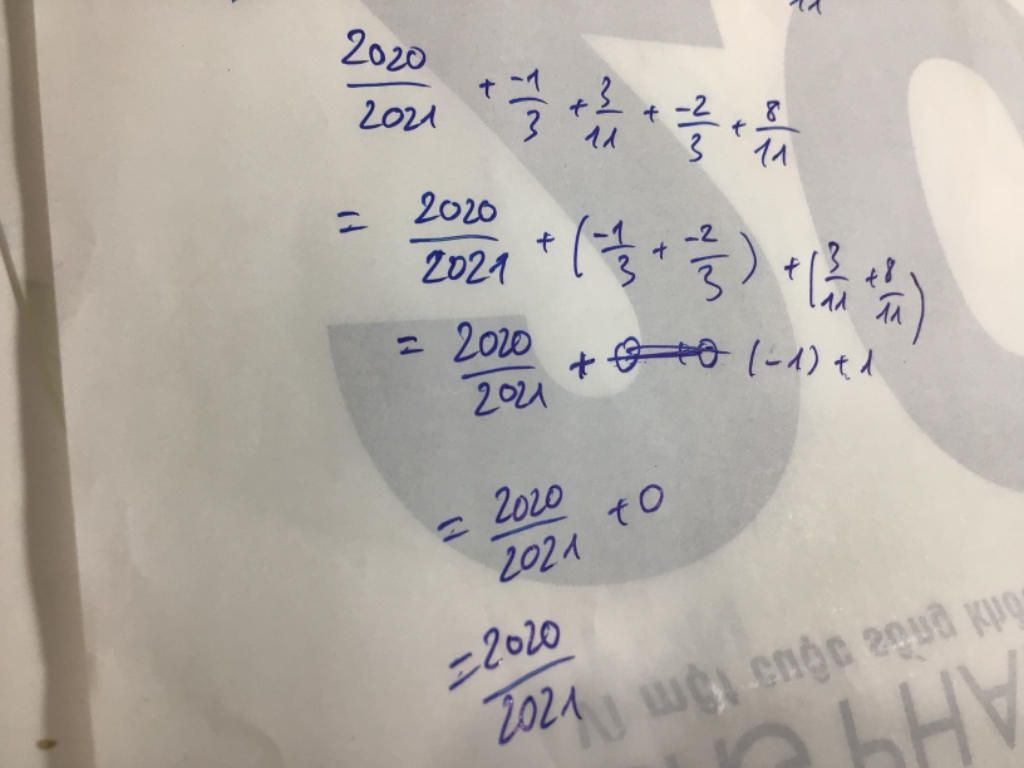 11
2020/2021 + -1/3 + 3/11 + -2/3 + 8/11
= 2020/2021 + (-1/3 + -2/3) + (3/11 + 8/11)
= 2020/2021 + (-1) + 1
= 2020/2021 + 0
= 2020/2021
Vì một cuộc sống